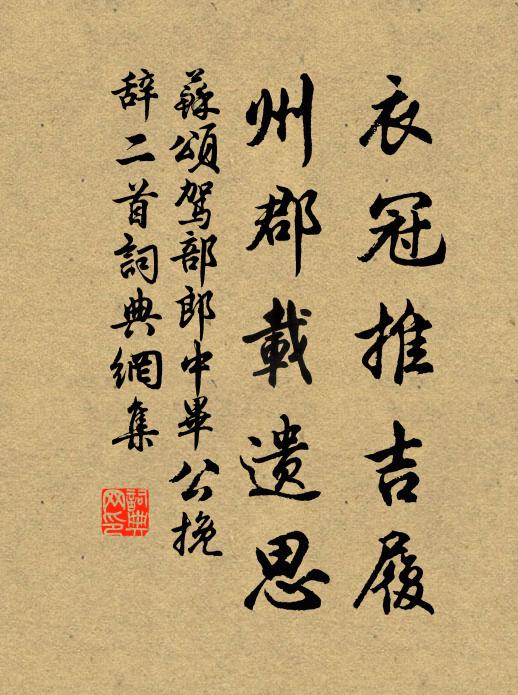 衣冠推吉履
州郡載遺思
蘇頌駕部郎中畢公挽
辞二首詞典網集
詞典网印